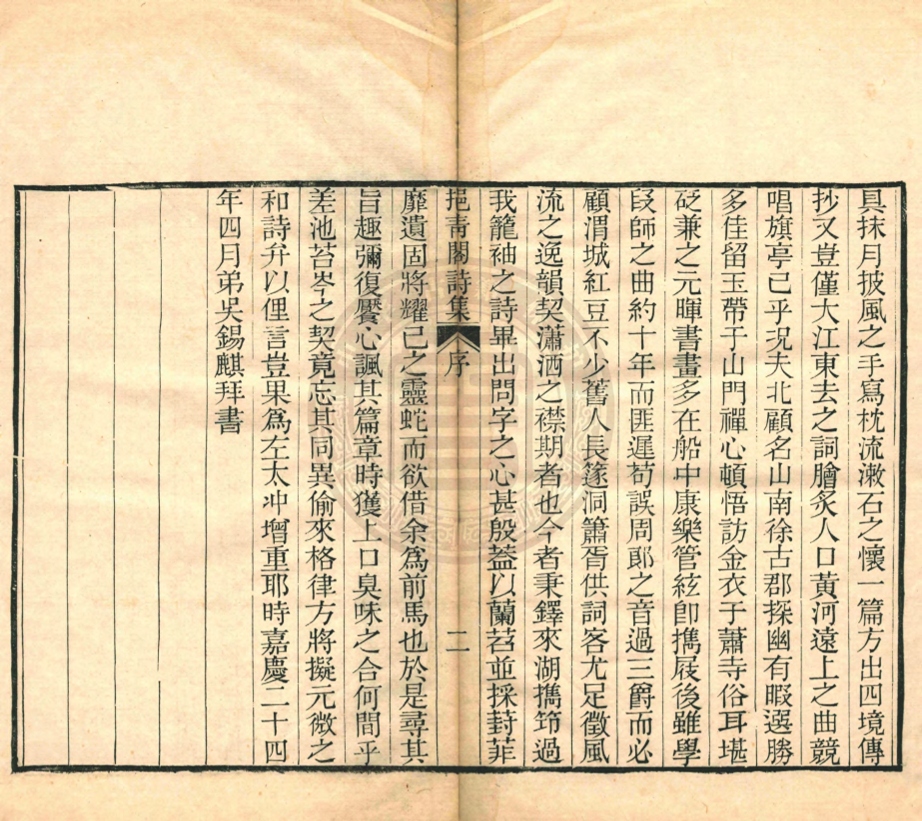 具抹月披風之手寫枕流漱石之懷一篇方出四境傳
抄又豈僅大江東去之詞膾炙人口黃河遠上之曲競
唱旗亭已乎況夫北顧名山南徐古郡探幽有暇選勝
多佳留玉帶于山門禪心頓悟訪金衣于蕭寺俗耳堪
砭兼之元暉書畫多在船中康樂管絃卽攜屐後雖學
段師之曲約十年而匪遲苟誤周郞之音過三爵而必
顧渭城紅豆不少舊人長篴洞簫胥供詞客尤足徵風
流之逸韻契瀟洒之襟期者也今者秉鐸來湖攜笻過
我籠袖之詩畢出問字之心甚殷葢以蘭苕並採葑菲
挹青閣詩集 序 二
靡遺固將耀己之靈蛇而欲借余爲前馬也於是尋其
旨趣彌復饜心諷其篇章時獲上口臭味之合何間乎
差池苔岑之契竟忘其同異偷來格律方將擬元微之
和詩弁以俚言豈果爲左太冲增重耶時嘉慶二十四
年四月弟吳錫麒拜書